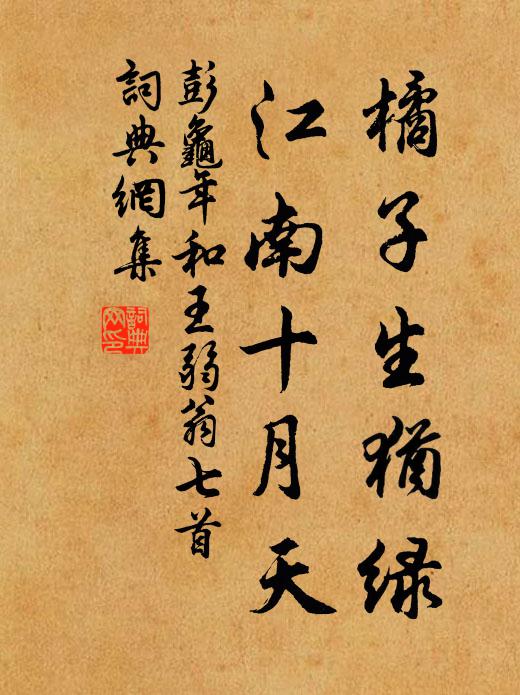 橘子生猶緑
江南十月天
彭龜年和王弱翁七首
詞典網集
詞典網印